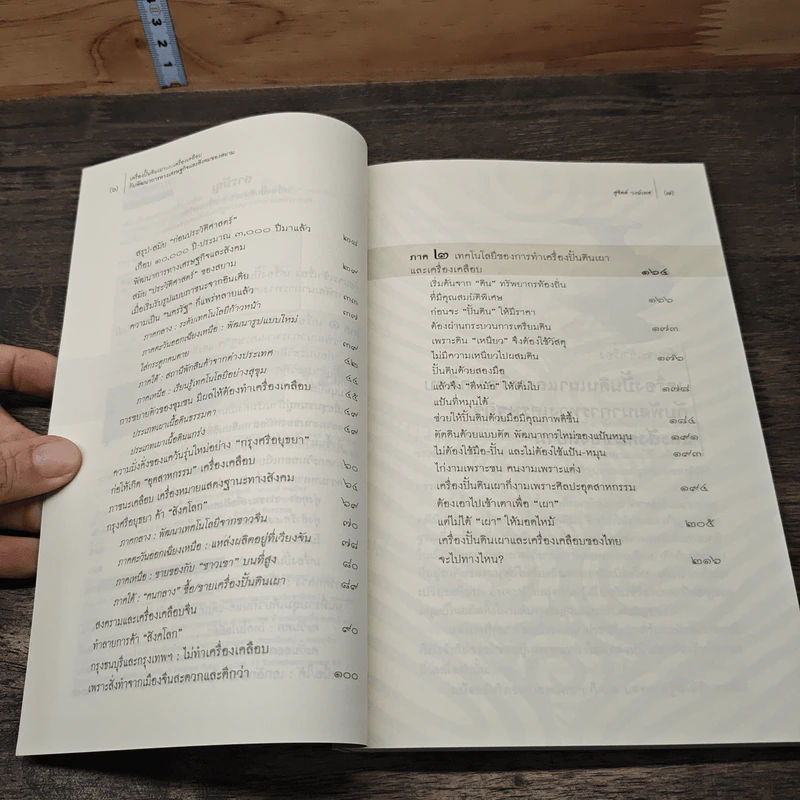 3
2
1
(๖)
เครื่องปั้นดินเผาและเครื่องเคลือบ
กับพัฒนาการทางเศรษฐกิจและสังคมของสยาม
สรุป-สมัย "ก่อนประวัติศาสตร์"
เกือบ ๑๐,๐๐๐ ปี-ประมาณ ๓,๐๐๐ ปีมาแล้ว
พัฒนาการทางเศรษฐกิจและสังคม
สมัย "ประวัติศาสตร์" ของสยาม
เมื่อเริ่มรับรูปแบบภาชนะจากอินเดีย
ความเป็น "นครรัฐ" ที่แพร่หลายแล้ว ๓๓
ภาคกลาง : ระดับเทคโนโลยีก้าวหน้า ๓๗
ภาคตะวันออกเฉียงเหนือ : พัฒนารูปแบบใหม่
ใส่กระดูกคนตาย
ภาคใต้ : สถานีพักสินค้าจากต่างประเทศ ๔๒
ภาคเหนือ : เรียนรู้เทคโนโลยีอย่างสุขุม ๔๔
การขยายตัวของชุมชน มีผลให้ต้องทำเครื่องเคลือบ ๔๕
ประเภทเผาเนื้อดินธรรมดา ๔๙
ประเภทเผาเนื้อดินแกร่ง ๔๙
ความมั่งคั่งของแคว้นรุ่นใหม่อย่าง "กรุงศรีอยุธยา"
ก่อให้เกิด "อุตสาหกรรม" เครื่องเคลือบ ๖๐
ภาชนะเคลือบ เครื่องหมายแสดงฐานะทางสังคม ๖๔
กรุงศรีอยุธยา ค้า "สังคโลก" ๖๙
ภาคกลาง : พัฒนาเทคโนโลยีจากชาวจีน ๗๐
ภาคตะวันออกเฉียงเหนือ : แหล่งผลิตอยู่ที่เวียงจัน ๗๘
ภาคเหนือ : ขายของกับ "ชาวเขา" บนที่สูง ๘๐
ภาคใต้ : "คนกลาง" ซื้อ/ขายเครื่องปั้นดินเผา ๘๙
สงครามและเครื่องเคลือบจีน
ทำลายการค้า "สังคโลก" ๙๐
กรุงธนบุรีและกรุงเทพฯ : ไม่ทำเครื่องเคลือบ
เพราะสั่งทำจากเมืองจีนสะดวกและดีกว่า ๑๐๐
สุจิตต์ วงษ์เทศ (๗)
ภาค ๒ เทคโนโลยีของการทำเครื่องปั้นดินเผา
และเครื่องเคลือบ ๑๖๔
เริ่มต้นจาก "ดิน" ทรัพยากรท้องถิ่น
ที่มีคุณสมบัติพิเศษ ๑๖๖
ก่อนจะ "ปั้นดิน" ให้มีราคา
ต้องผ่านกระบวนการเตรียมดิน ๑๗๓
เพราะดิน "เหนียว" จึงต้องใช้วัสดุ
ไม่มีความเหนียวไปผสมดิน ๑๗๖
ปั้นดินด้วยสองมือ
แล้วจึง "ตีหม้อ" ให้เต็มใบ ๑๗๘
แป้นที่หมุนได้
ช่วยให้ปั้นดินด้วยมือมีคุณภาพดีขึ้น ๑๘๔
ตัดดินด้วยแบบตัด พัฒนาการใหม่ของแป้นหมุน ๑๙๑
ไม่ต้องใช้มือ-ปั้น และไม่ต้องใช้แป้น-หมุน ๑๙๓
ไก่งามเพราะขน คนงามเพราะแต่ง
เครื่องปั้นดินเผาที่งามเพราะศิลปะอุตสาหกรรม ๑๙๔
ต้องเอาไปเข้าเตาเพื่อ "เผา"
แต่ไม่ได้ "เผา" ให้มอดไหม้ ๒๐๕
เครื่องปั้นดินเผาและเครื่องเคลือบของไทย
จะไปทางไหน? ๒๑๖